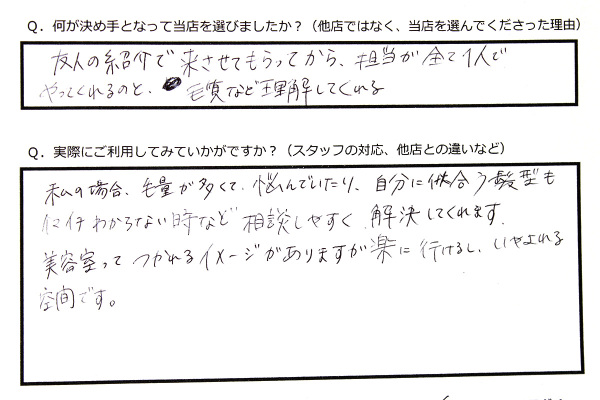 Q. 何が決め手となって当店を選びましたか？（他店ではなく、当店を選んでくださった理由）
友人の紹介で来させてもらってから、担当が全て1人で
やってくれるのと、毛質など理解してくれる
Q. 実際にご利用してみていかがですか？（スタッフの対応、他店との違いなど）
私の場合、毛量が多くて、悩んでいたり、自分に似合う髪型も
イマイチわからない時など相談しやすく解決してくれます。
美容室ってつかれるイメージがありますが楽に行けるし、いやされる
空間です。